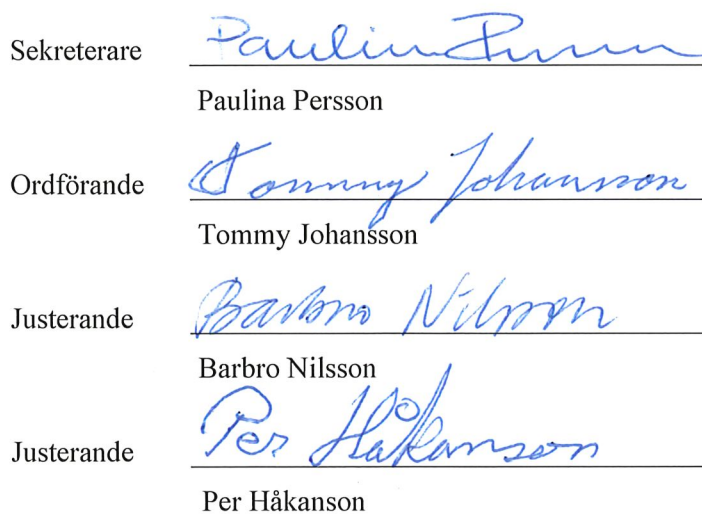 Sekreterare Paulina Persson
Paulina Persson
Ordförande Tommy Johansson
Tommy Johansson
Justerande Barbro Nilsson
Barbro Nilsson
Justerande Per Håkanson
Per Håkanson